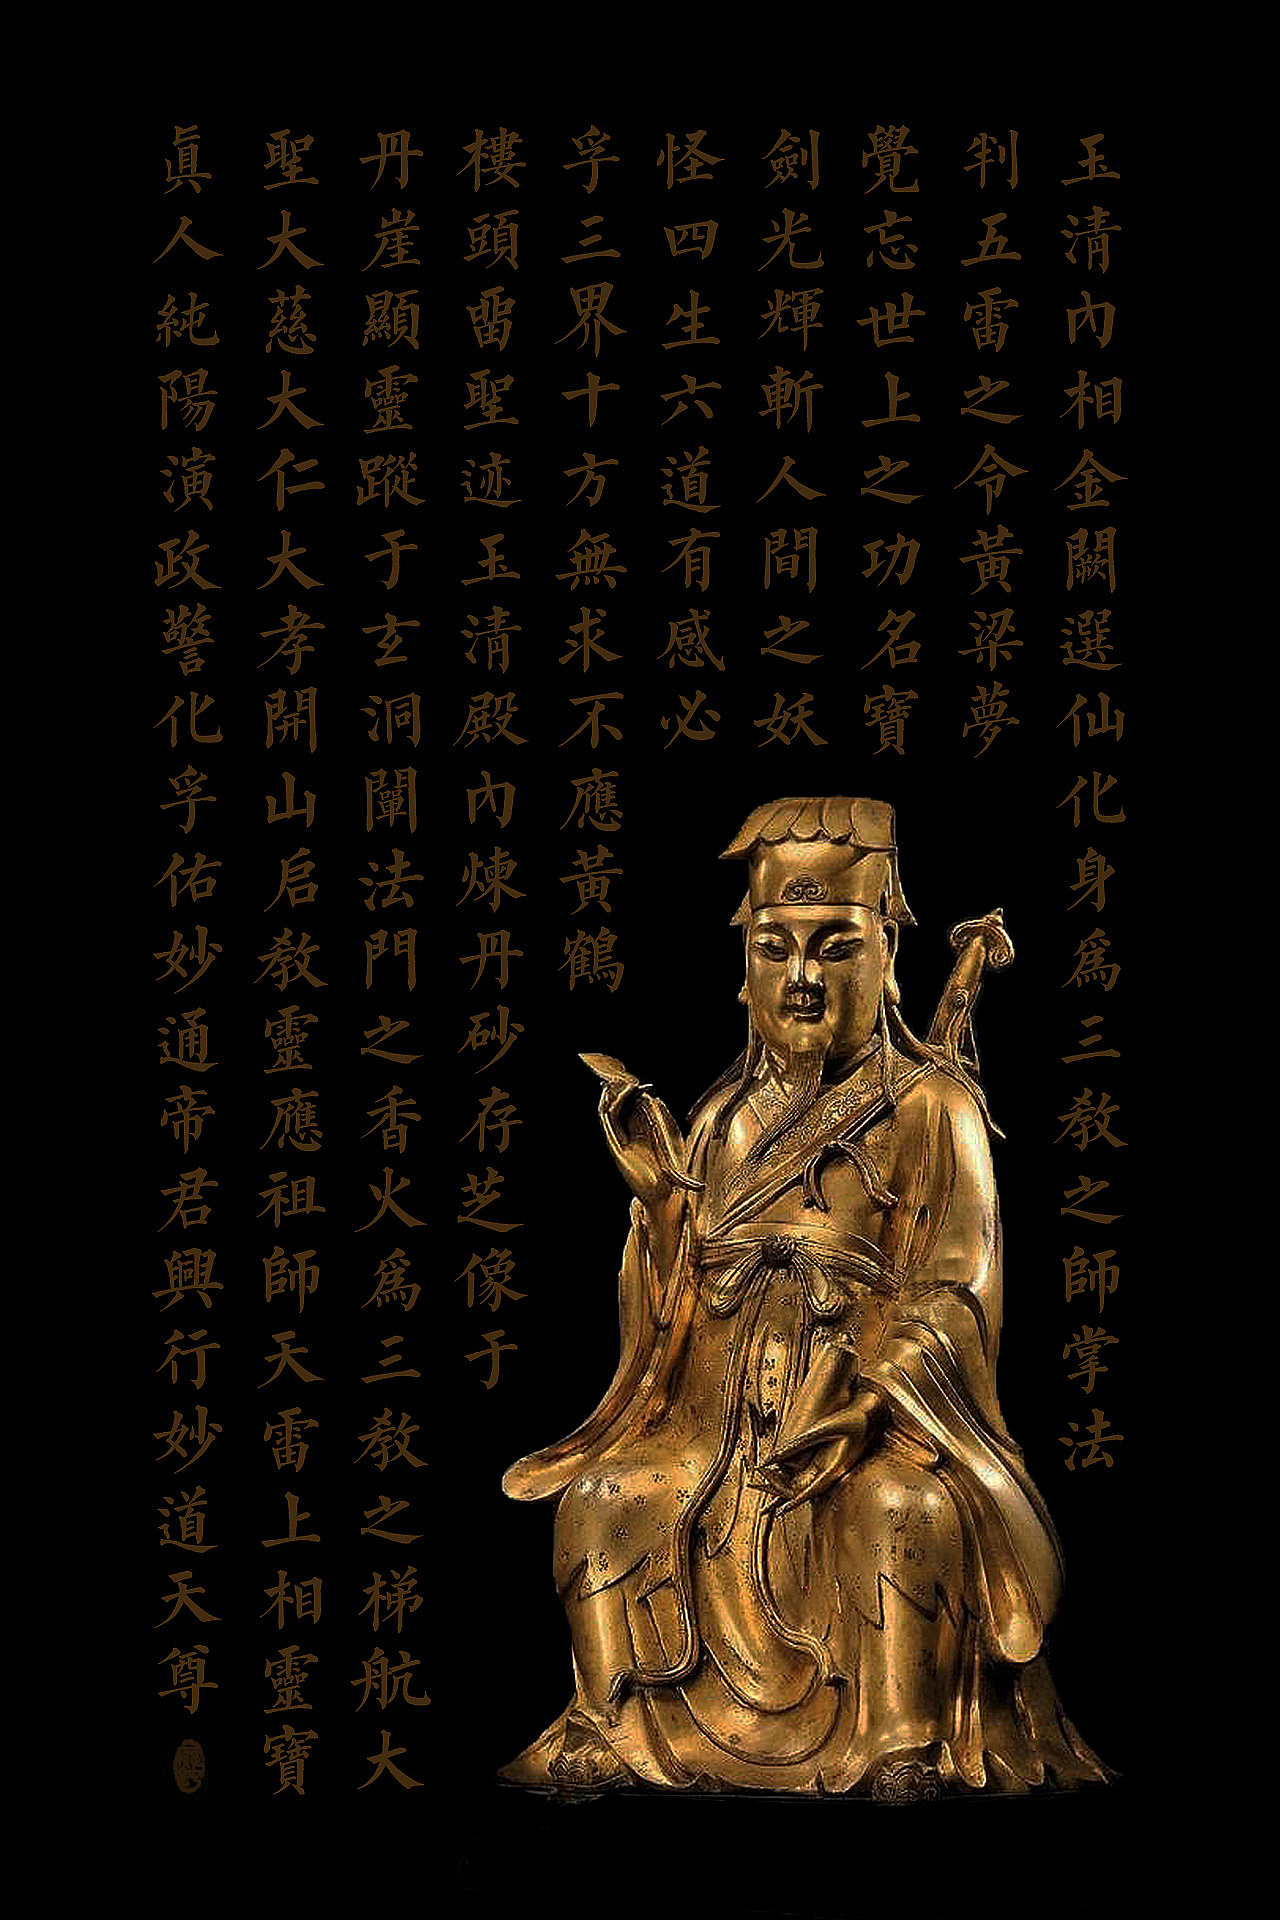 玉清內相金闕選仙化身爲三教之師掌法
判五雷之令黃梁夢
覺忘世上之功名寶
劍光輝斬人間之妖
怪四生六道有感必
孚三界十方無求不應黃鶴
樓頭畱聖迹玉清殿內煉丹砂存芝像于
丹崖顯靈蹤于玄洞闡法門之香火爲三教之梯航大
聖大慈大仁大孝開山启教靈應祖師天雷上相靈寶
眞人純陽演政警化孚佑妙通帝君興行妙道天尊